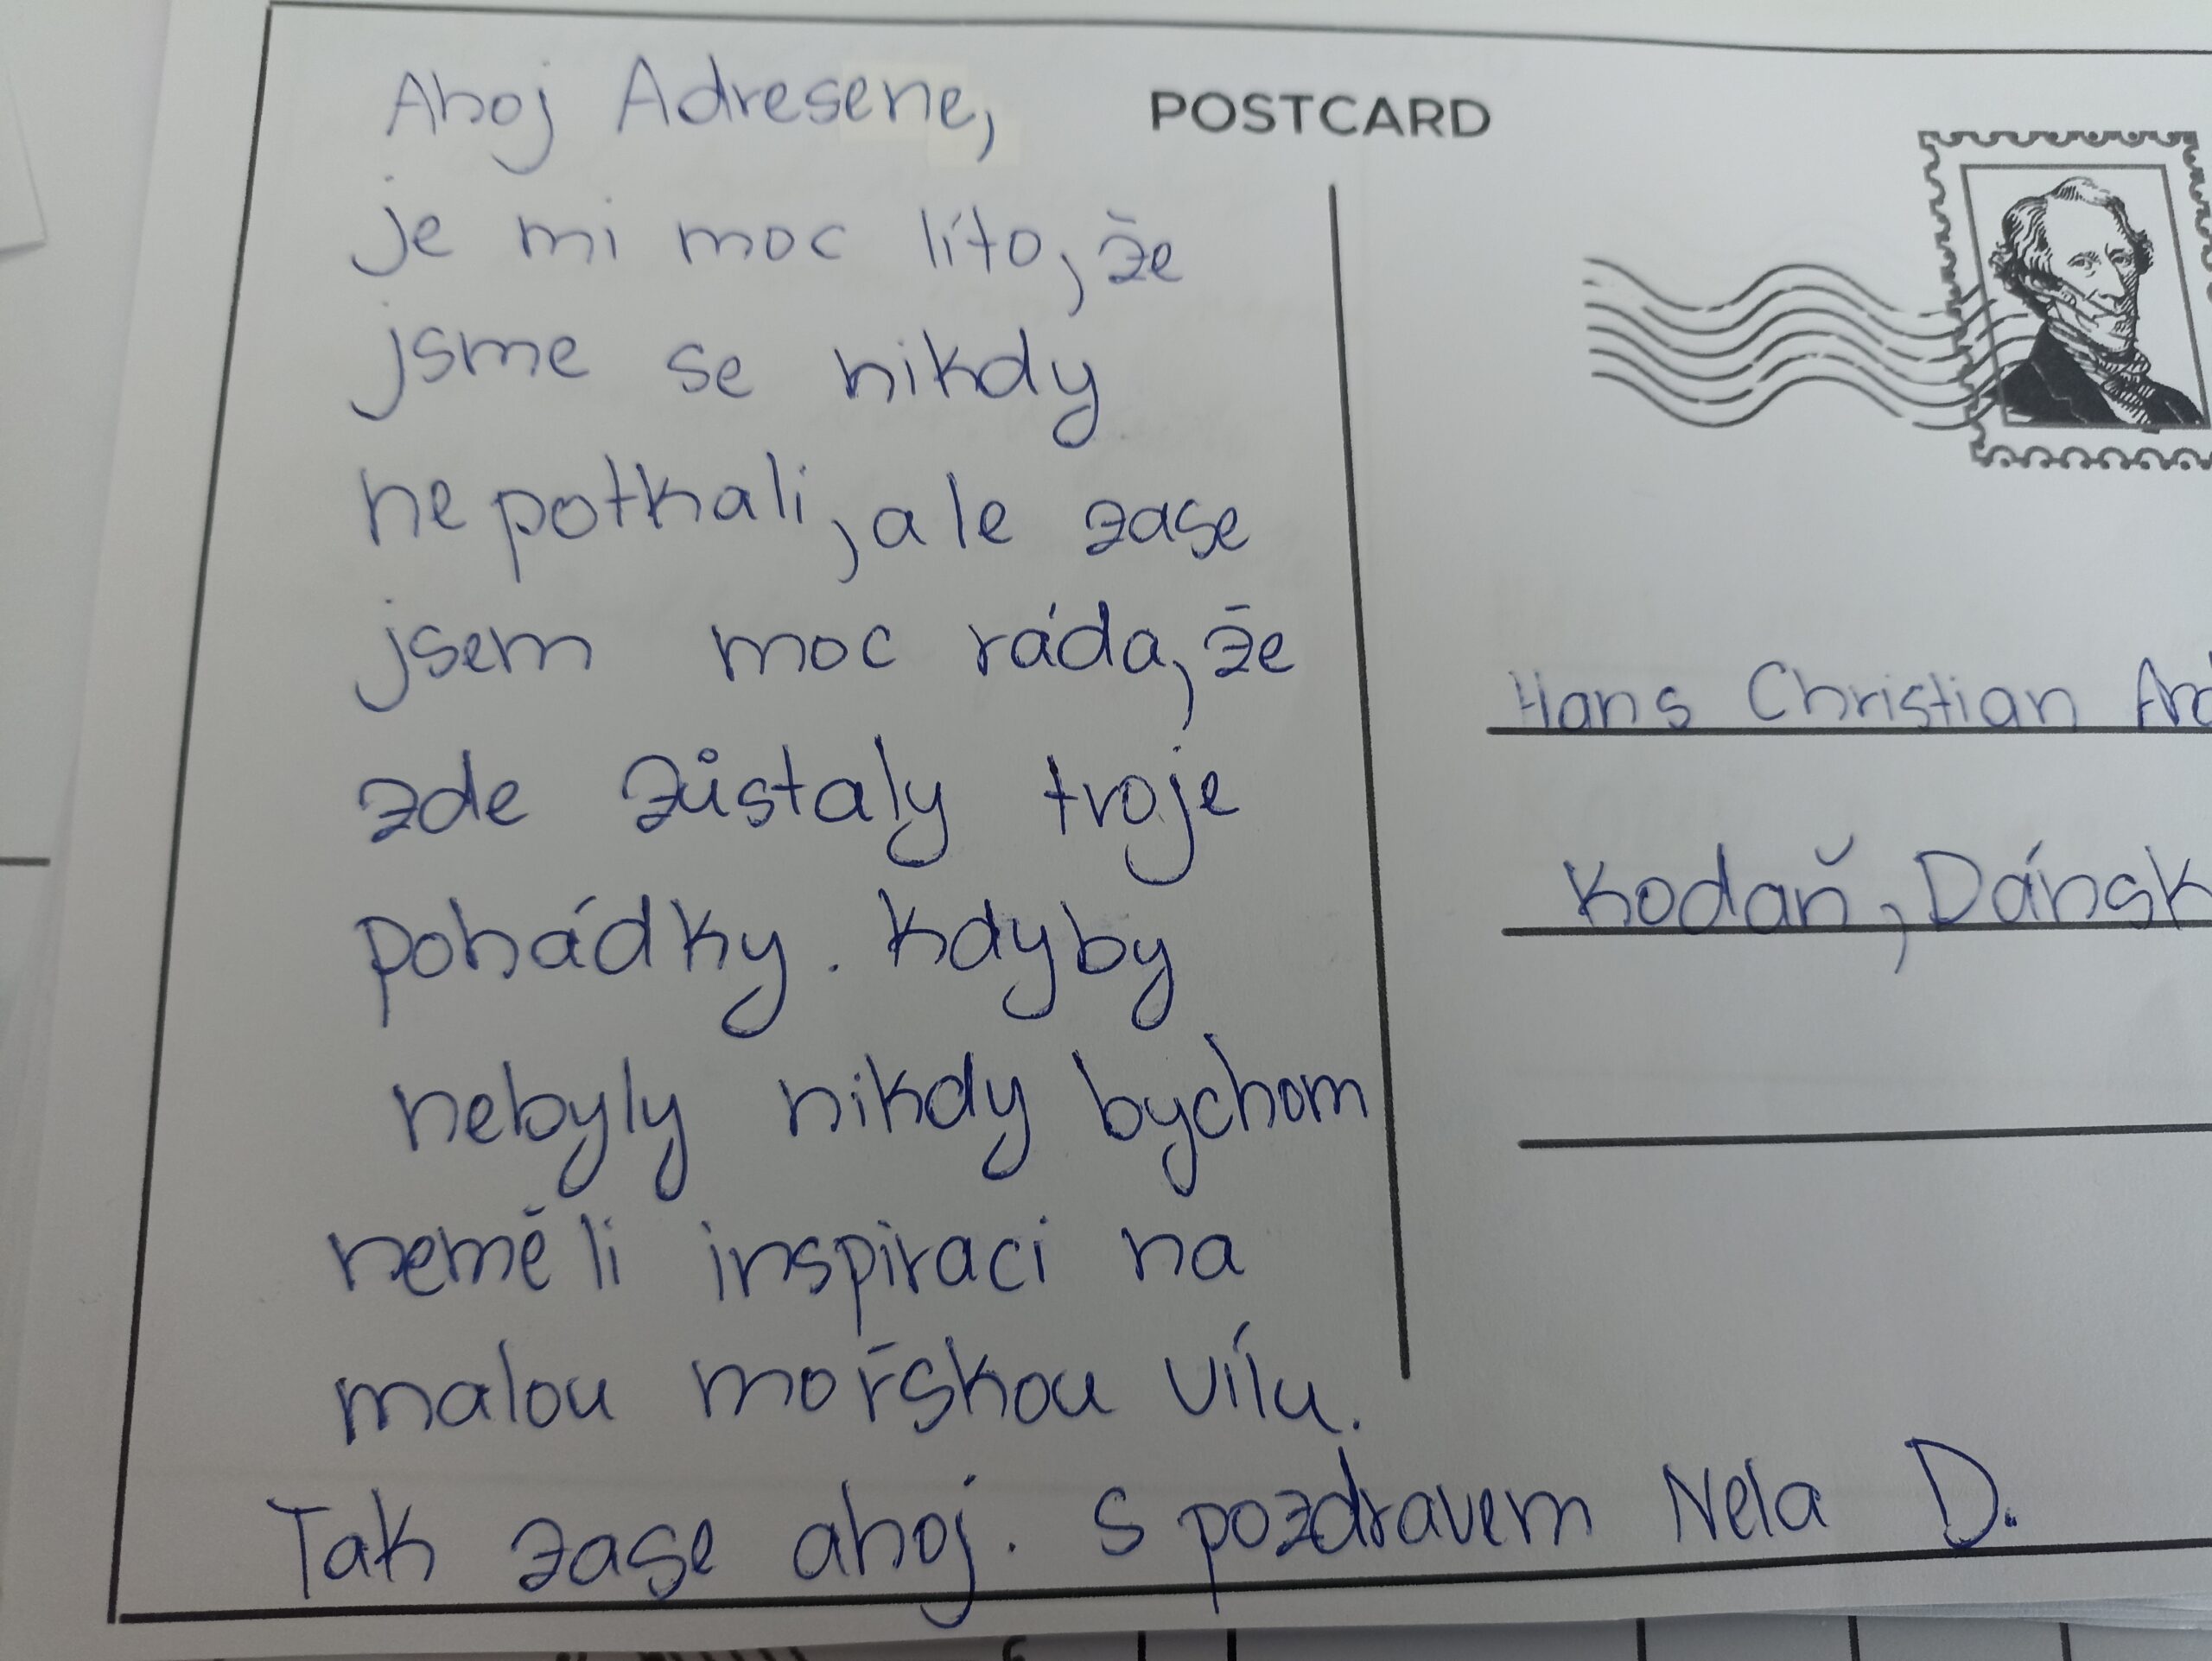 Ahoj Adresene,
POSTCARD
je mi moc líto, že
jsme se nikdy
nepotkali, ale zase
jsem moc ráda, že
zde zůstaly troje
pohádky. Kdyby
nebyly nikdy bychom
neměli inspiraci na
malou mořskou vílu.
Tak zase ahoj. S pozdravem Nela D.
Hans Christian And
Kodaň, Dánsk